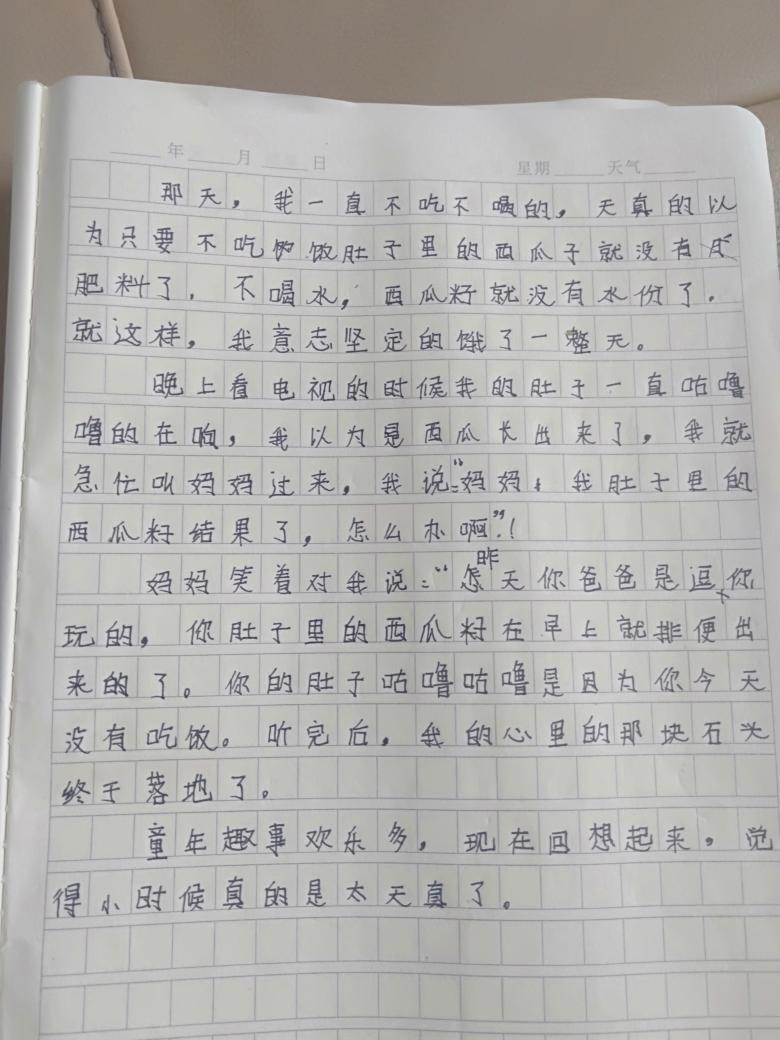 年 月 日 星期 天气
那天，我一直不吃不喝的，天真的以
为只要不吃饭肚子里的西瓜子就没有
肥料了，不喝水，西瓜籽就没有水份了。
就这样，我意志坚定的饿了一整天。
晚上看电视的时候我的肚子一直咕噜
噜的在响，我以为是西瓜长出来了，我就
急忙叫妈妈过来，我说：“妈妈，我肚子里的
西瓜籽结果了，怎么办啊”！
妈妈笑着对我说：“昨天你爸爸是逗你
玩的，你肚子里的西瓜籽在早上就排便出
来的了。你的肚子咕噜咕噜是因为你今天
没有吃饭。听完后，我的心里的那块石头
终于落地了。
童年趣事欢乐多，现在回想起来，觉
得小时候真的是太天真了。